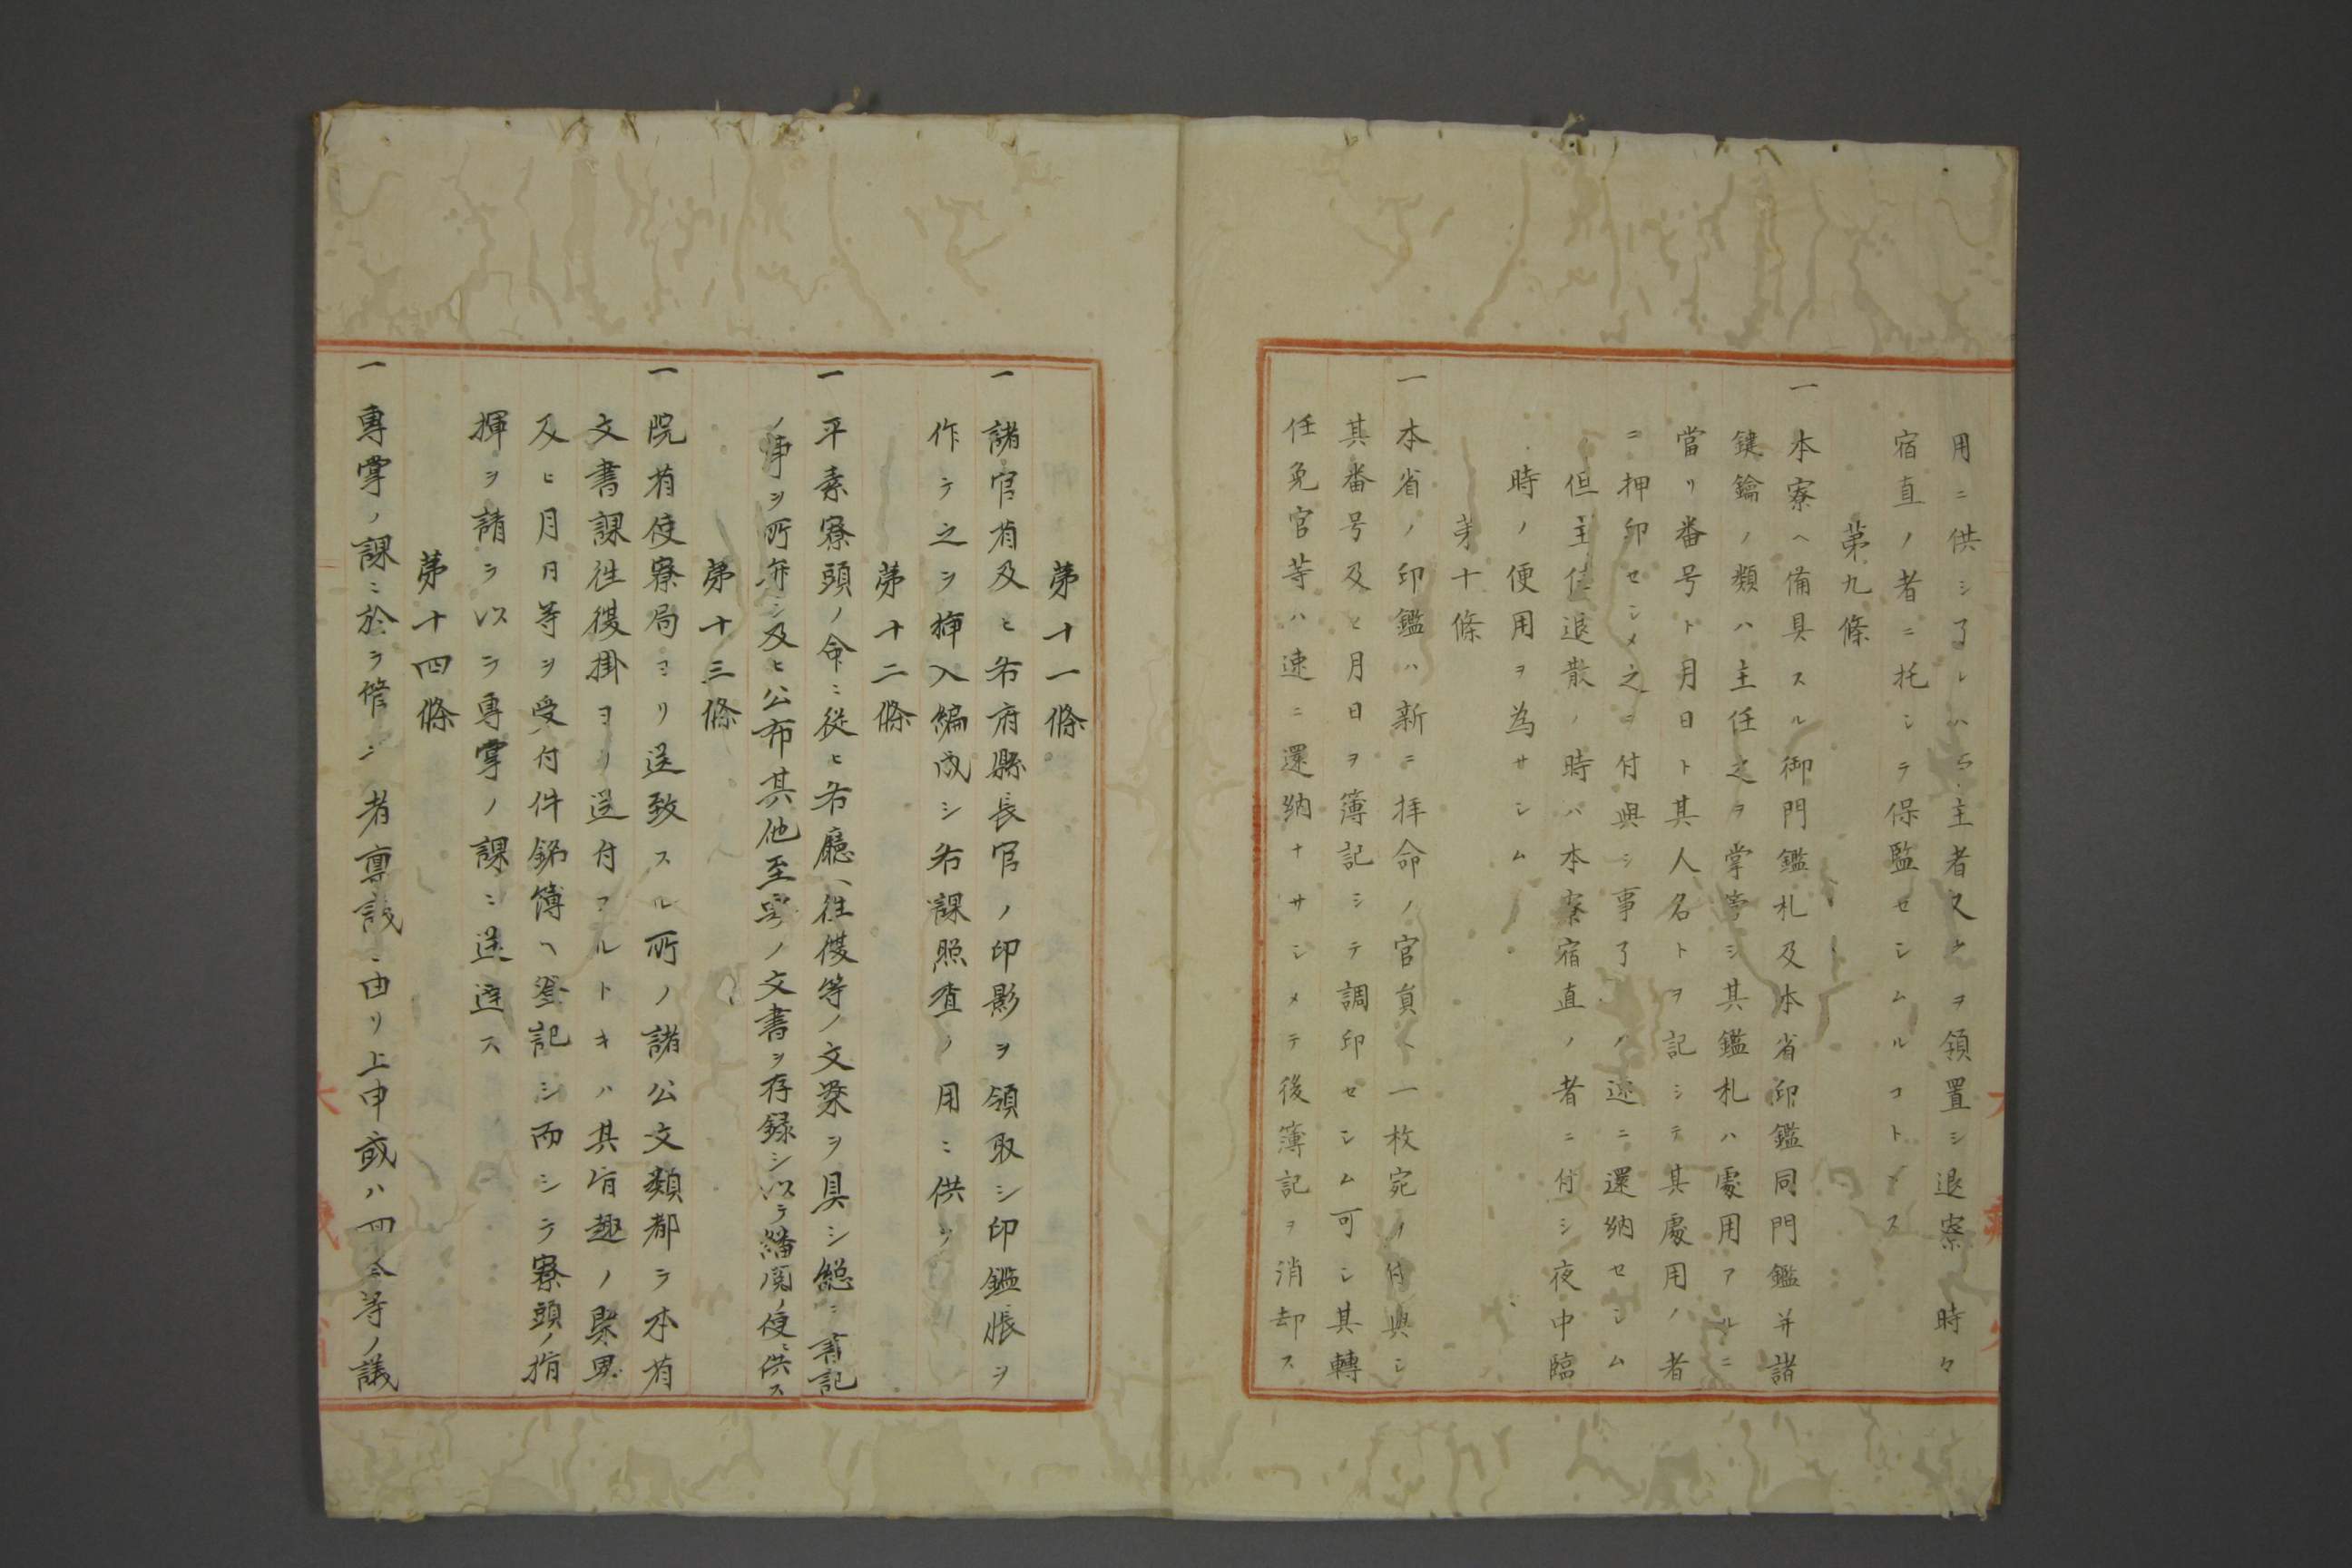 用ニ供シ了レハ主者又之ヲ領置シ退寮時々
宿直ノ者ニ托シテ保監セシムルコトヽス
第九條
一本寮ヘ備具スル御門鑑札及本省印鑑同門鑑并諸
鍵鑰ノ類ハ主任之ヲ掌管シ其鑑札ハ處用アルニ
當リ番号ト月日ト其人名トヲ記シテ其處用ノ者
ニ押印セシメ之ニ付與シ事了ノ迹ニ還納セシム
但主任退散ノ時ハ本寮宿直ノ者ニ付シ夜中臨
時ノ便用ヲ為サシム
第十條
一本省ノ印鑑ハ新ニ拝命ノ官員ヘ一枚宛ノ付與シ
其番号及ヒ月日ヲ簿記シテ調印セシム可シ其轉
任免官等ハ速ニ還納ナサシメテ後簿記ヲ消却ス
第十一條
一諸官省及ヒ各府縣長官ノ印影ヲ領取シ印鑑帳ヲ
作テ之ヲ挿入編成シ各課照査ノ用ニ供ス
第十二條
一平素寮頭ノ命ニ從ヒ各廳ヘ往復等ノ文案ヲ具シ総ニ書記
ノ事ヲ所弁シ及ヒ公布其他至要ノ文書ヲ存録シ以テ繙閲ノ便ニ供ス
第十三條
一院省使寮局ヨリ送致スル所ノ諸公文類都テ本省
文書課往復掛ヨリ送付アルトキハ其旨趣ノ槩略
及ヒ月日等ヲ受付件銘簿ヘ登記シ而シテ寮頭ノ指
揮ヲ請ヲ以テ專掌ノ課ニ送達ス
第十四條
一專掌ノ課ニ於テ修シ者稟議ニ由リ上申或ハ回答等ノ議